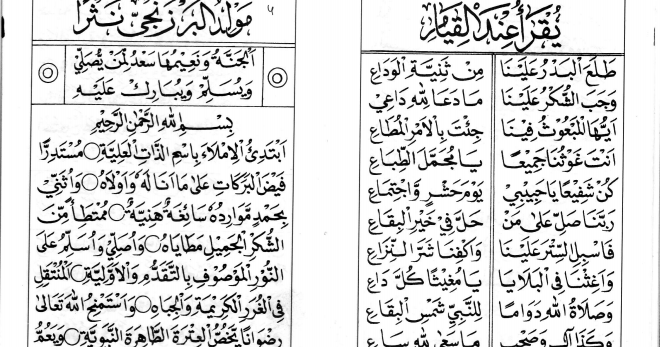 يُقْرَأُ عِنْدَ الْقِيَامِ
طَلَعَ الْبَدْرُ عَلَيْنَا مِنْ ثَنِيَّةِ الْوَدَاعِ
وَجَبَ الشُّكْرُ عَلَيْنَا مَا دَعَا لِلّٰهِ دَاعِيْ
اَيُّهَا الْمَبْعُوْثُ فِيْنَا جِئْتَ بِالْاَمْرِ الْمُطَاعِ
اَنْتَ غَوْثُنَا جَمِيْعًا يَا مُجَمَّلَ الطِّبَاعِ
كُنْ شَفِيْعًا يَا حَبِيْبِيْ يَوْمَ حَشْرٍ وَاجْتِمَاعِ
رَبَّنَا صَلِّ عَلٰى مَنْ حَلَّ فِيْ خَيْرِ الْبِقَاعِ
فَاسْبِلِ السِّتْرَ عَلَيْنَا وَاكْفِنَا شَرَّ النِّزَاعِ
وَاَغِثْنَا فِي الْبَلَايَا يَا مُغِيْثًا كُلَّ دَاعِ
وَصَلَاةُ اللهِ دَوَامًا لِلنَّبِيِّ شَمْسِ الْبِقَاعِ
وَكَذَا آلٍ وَصَحْبٍ مَا سَعٰى لِلّٰهِ سَاعِ
مَوْلِدُ الْبَرْزَنْجِيِّ نَثْرًا
اَلْجَنَّةُ وَنَعِيْمُهَا سَعْدٌ لِمَنْ يُصَلِّيْ
وَيُسَلِّمُ وَيُبَارِكُ عَلَيْهِ
بِسْمِ اللهِ الرَّحْمٰنِ الرَّحِيْمِ
اَبْتَدِئُ الْاِمْلَاءَ بِاسْمِ الذَّاتِ الْعَلِيَّةِ ○ مُسْتَدِرًّا
فَيْضَ الْبَرَكَاتِ عَلٰى مَا اَنَالَهُ وَاَوْلَاهُ ○ وَاُثَنِّيْ
بِحَمْدٍ مَوَارِدُهُ سَائِغَةٌ هَنِيَّةٌ ○ مُمْتَطِأً مِنَ
الشُّكْرِ الْجَمِيْلِ مَطَايَاهُ ○ وَاُصَلِّيْ وَاُسَلِّمُ عَلَى
النُّوْرِ الْمَوْصُوْفِ بِالتَّقَدُّمِ وَالْاَوَّلِيَّةِ ○ الْمُنْتَقِلِ
فِي الْغُرَرِ الْكَرِيْمَةِ وَالْجِبَاهِ ○ وَاَسْتَمْنِحُ اللهَ تَعَالٰى
رِضْوَانًا يَخُصُّ الْعِتْرَةَ الطَّاهِرَةَ النَّبَوِيَّةَ ○ وَيَعُمُّ